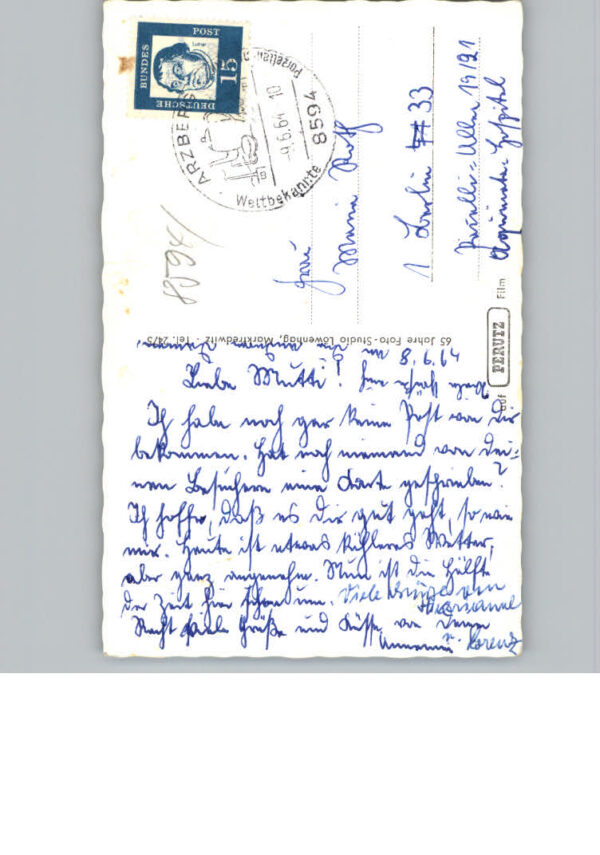 DEUTSCHE BUNDESPOST
15
Luther
ARZBERG
Porzellan
-9.6.64 10
8594
Weltbekannte
8594/
Frau
Maria Roth
1 Berlin 33
19/21
65 Jahre Foto-Studio Löwenhag, Marktredwitz - Tel. 2475
auf PERUTZ Film
8.6.64
Liebe Mutti!
Ich habe noch gar keine Post von Dir
bekommen. Hat noch niemand von Dei=
nen Besuchern eine Karte geschrieben?
Ich hoffe, daß es Dir gut geht, so wie
mir. Heute ist etwas kühleres Wetter,
aber ganz angenehm. Nun ist die Hälfte
der Zeit hier schon um. Viele Grüße von
Recht viele Grüße und Küsse von Deiner
u. Lorenz